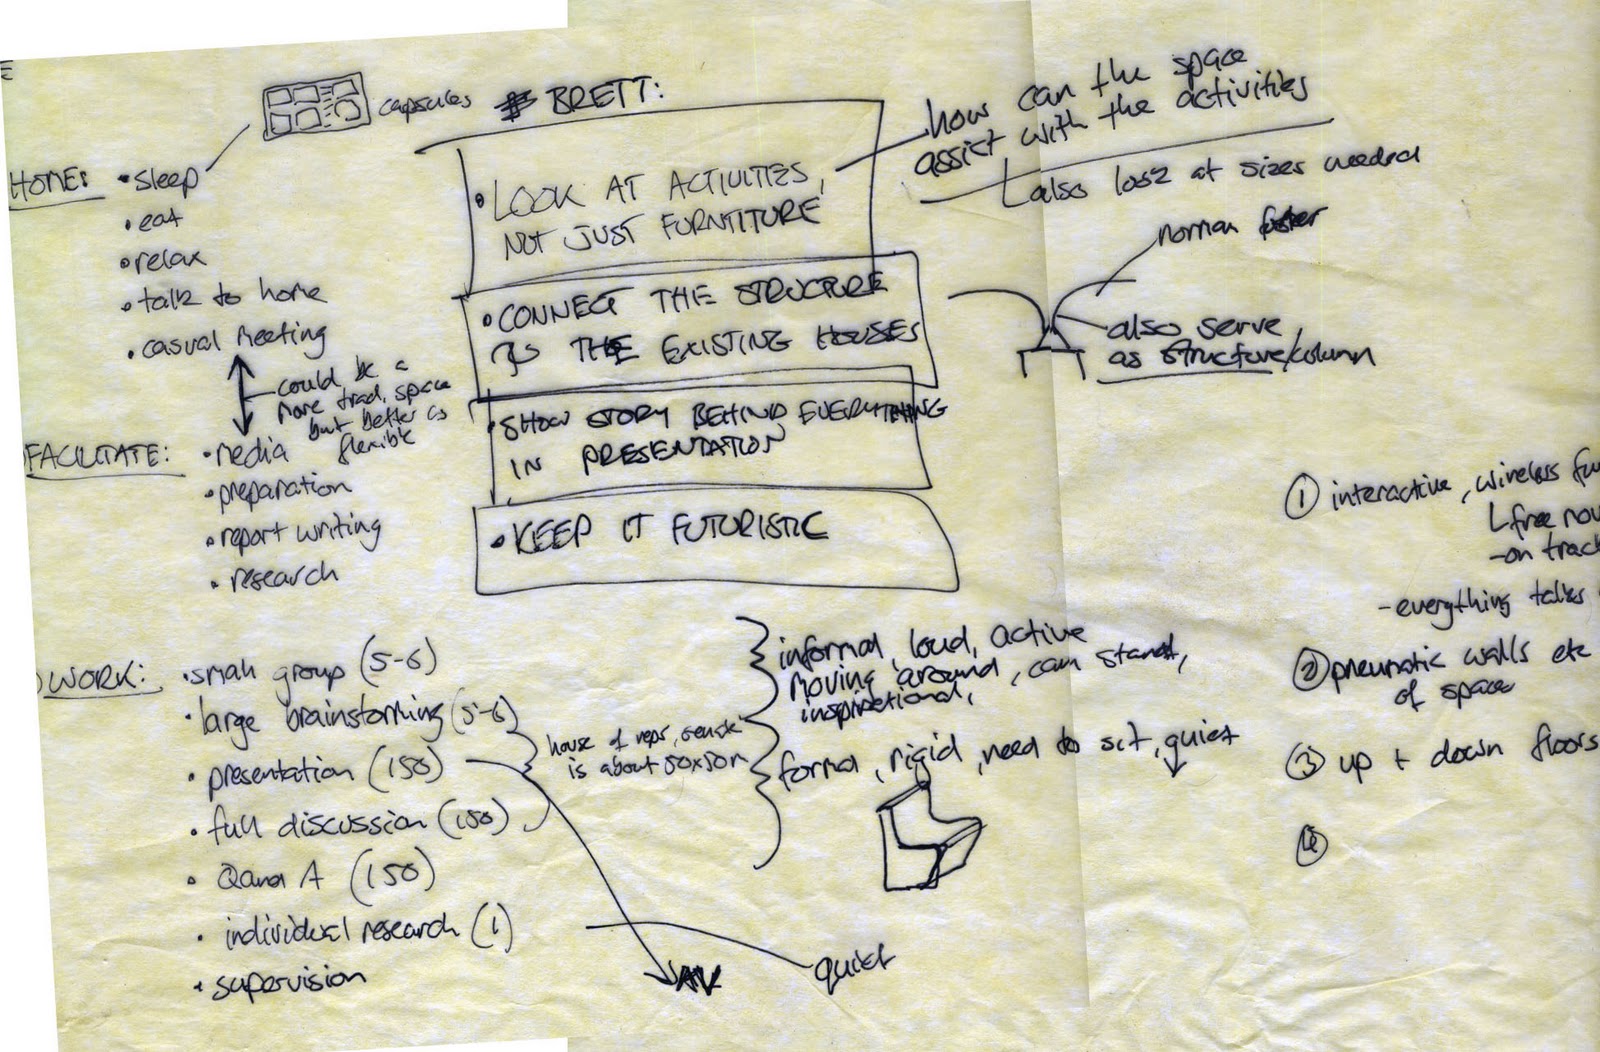 capsules
BRETT:
how can the space
assist with the activities
also look at sizes needed
HOME:
• sleep
• eat
• relax
• talk to home
• casual meeting
could be a
more trad. space
but better as
flexible
• LOOK AT ACTIVITIES,
NOT JUST FURNITURE
• CONNECT THE STRUCTURE
TO THE EXISTING HOUSES
• SHOW STORY BEHIND EVERYTHING
IN PRESENTATION
• KEEP IT FUTURISTIC
norman foster
also serve
as structure/column
FACILITATE:
• media
• preparation
• report writing
• research
WORK:
• small group (5-6)
• large brainstorming (5-6)
• presentation (150)
• full discussion (150)
• Q and A (150)
• individual research (1)
• supervision
house of reps, senate
is about 50x50m
informal, loud, active
moving around, can stand,
inspirational,
formal, rigid, need to sit, quiet
AV
quiet
① interactive, wireless
free
-on track
-everything talks
② pneumatic walls etc
of space
③ up + down floors
④